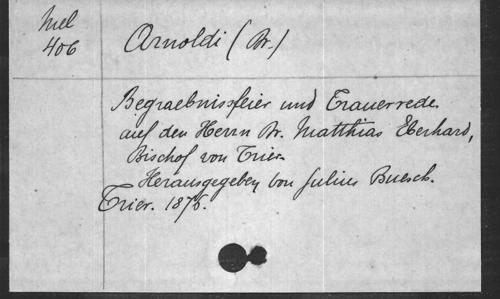 Mel
406
Arnoldi (Dr.)
Begraebnissfeier und Trauerrede
auf den Herrn Dr. Matthias Eberhard,
Bischof von Trier.
Herausgegeben von Julius Buesch.
Trier. 1876.